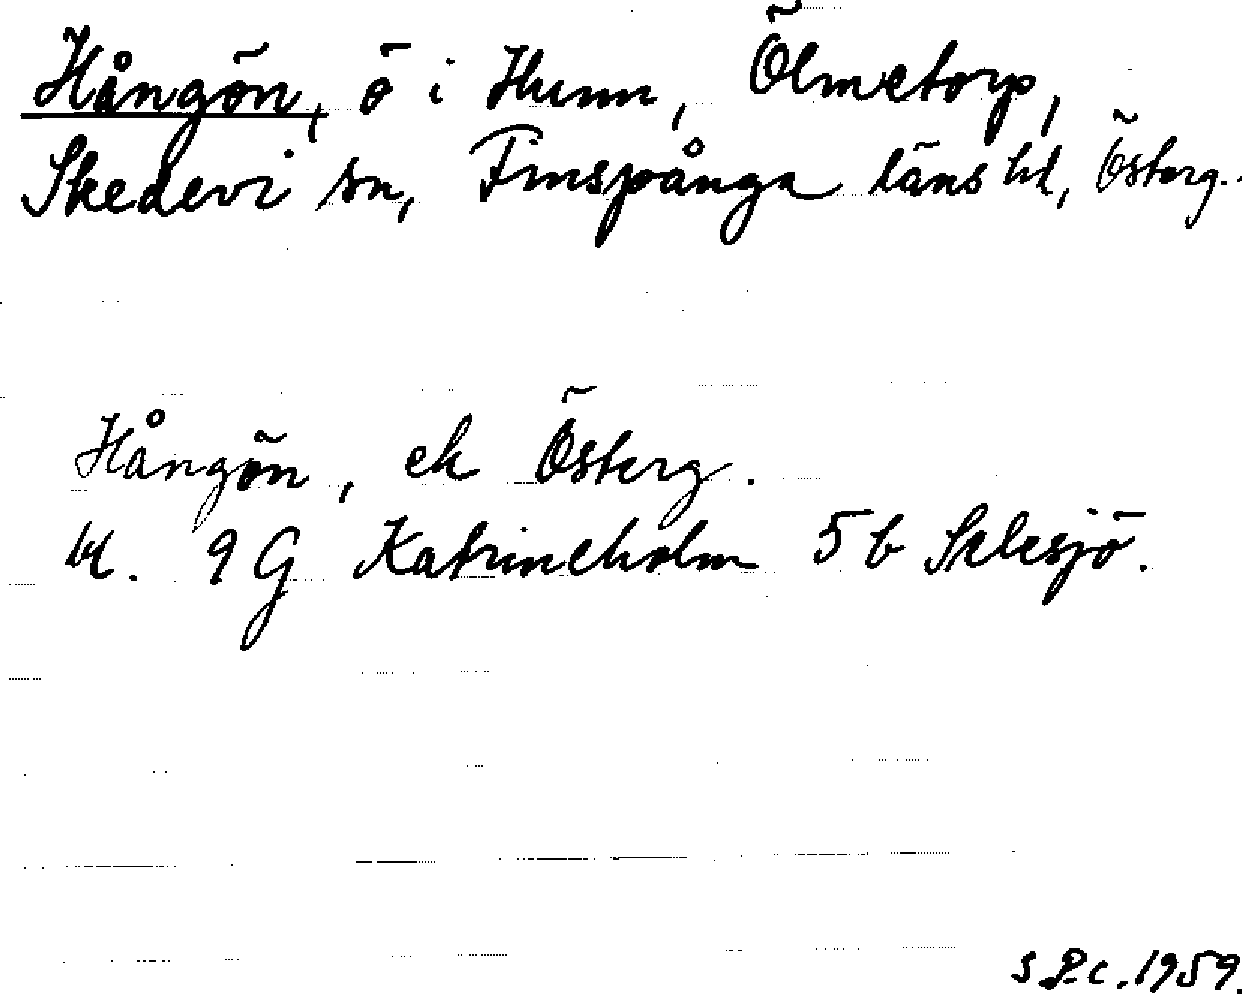 Hångön, ö i Hunn, Ölmetorp,
Skedevi sn, Finspånga läns hd, Österg.
Hångön, ek Österg.
bl. 9 G Katrineholm 5 b
1959.